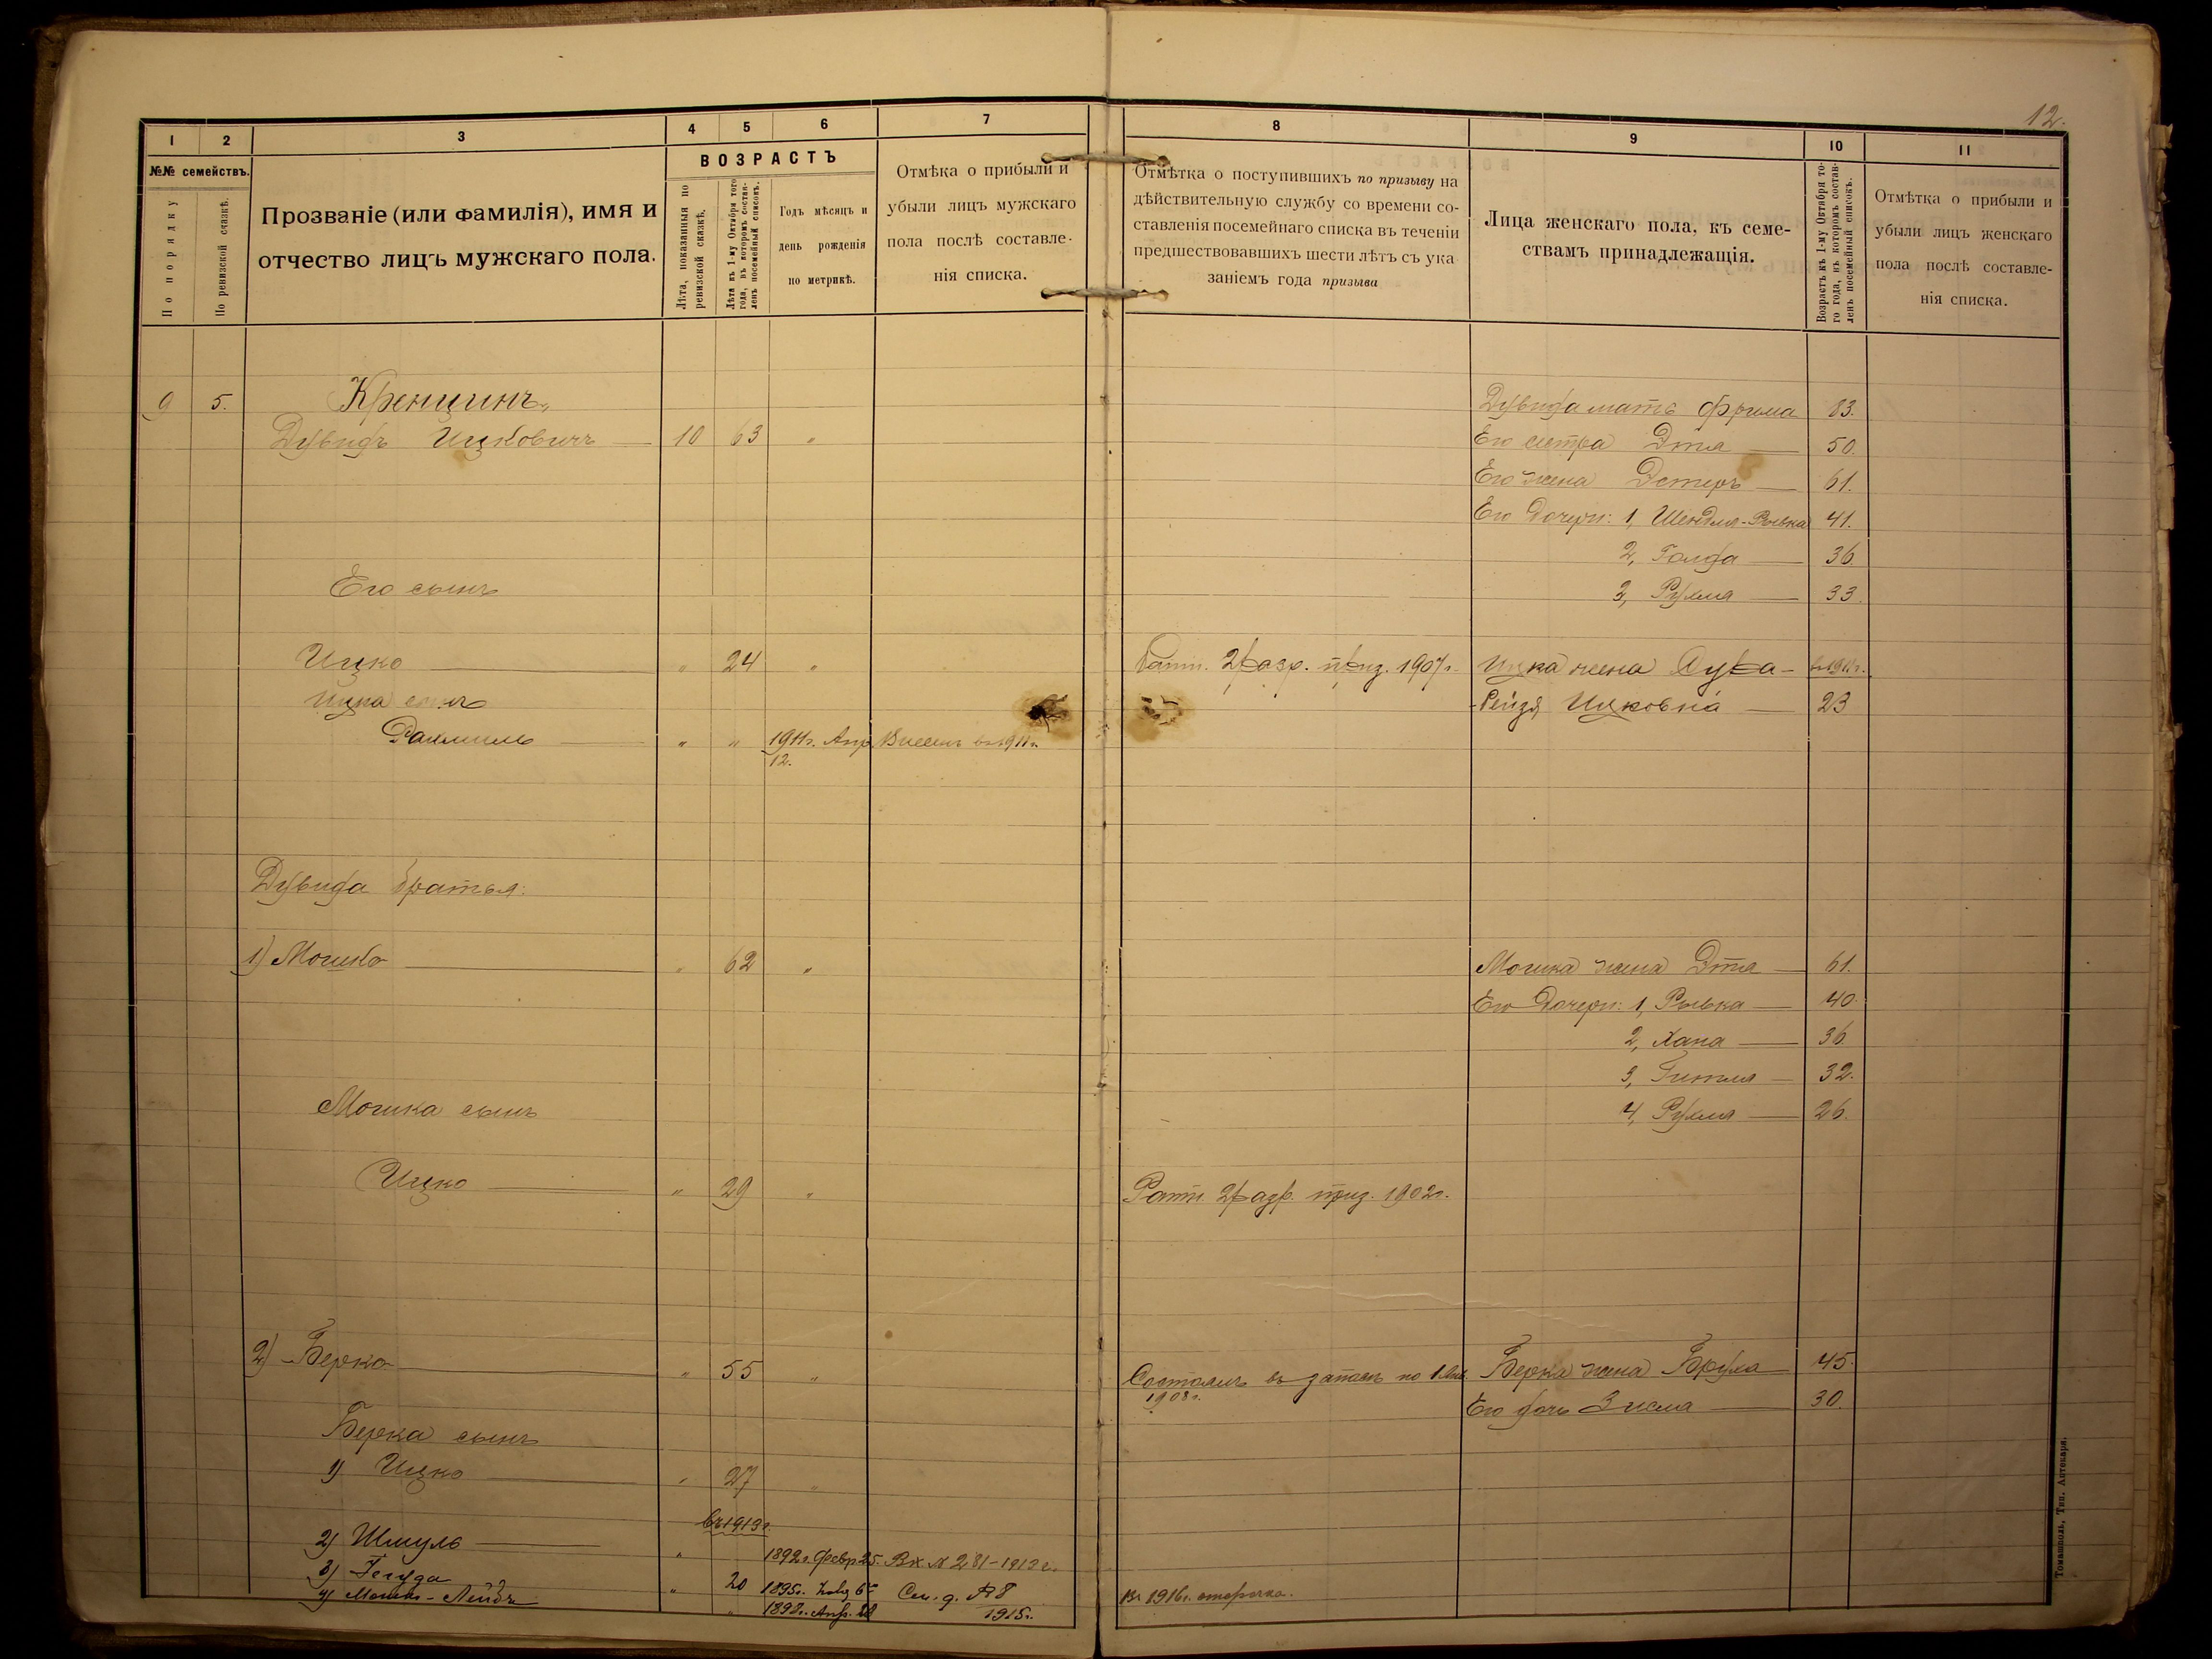 12.
1 2 3 4 5 6 7
№№ семействъ.
По порядку
По ревизской сказкѣ.
Прозваніе (или фамилія), имя и
отчество лицъ мужскаго пола.
ВОЗРАСТЪ
Лѣта, показанныя по
ревизской сказкѣ.
Лѣта къ 1-му Октября того
года, въ которомъ состав-
ленъ посемейный списокъ.
Годъ мѣсяцъ и
день рожденія
по метрикѣ.
Отмѣка о прибыли и
убыли лицъ мужскаго
пола послѣ составле-
нія списка.
9 5. Кренцинъ
Дувидъ Ицковичъ 10 63 "
Его сынъ
Ицко " 24 "
Ицка сынъ
Рахмиль " " 1911г. Апр. Внесенъ въ 1911г.
12.
Дувида братья:
1) Мошко " 62 "
Мошка сынъ
Ицко " 29 "
2) Берко " 55 "
Берка сынъ
1) Ицко " 27 "
въ 1913г.
2) Шмуль " 1892г. Февр. 25. Вх № 281-1913г.
3) Іегуда " 20 1895г. 6го См. д. № 8
4) Мошко-Лейбъ " 1898г. Апр. 1915г.
8 9 10 11
Отмѣтка о поступившихъ по призыву на
дѣйствительную службу со времени со-
ставленія посемейнаго списка въ теченіи
предшествовавшихъ шести лѣтъ съ ука
заніемъ года призыва
Лица женскаго пола, къ семе-
ствамъ принадлежащія.
Возрастъ къ 1-му Октября то-
го года, въ которомъ состав-
ленъ посемейный списокъ.
Отмѣтка о прибыли и
убыли лицъ женскаго
пола послѣ составле-
нія списка.
Дувида мать Фрима 83.
Его сестра Этля 50.
Его жена Эстеръ 61.
Его дочери: 1, Шендля-Рывка 41.
2, Голда 36.
3, Рухля 33.
Ратн. 2 разр. приз. 1907г. Ицка жена Сура въ 1911г.
Рейзя Ицковна 23
Мошка жена Этля 61.
Его дочери: 1, Рывка 40.
2, Хана 36.
3, Гитля 32.
4, Рухля 26.
Ратн. 2 разр. приз. 1902г.
Состоялъ въ запасѣ по 1 Янв. Берка жена Бруха 45.
1908г.
Его дочь Зисля 30.
Въ 1916г. отсрочка.
Томашполь, Тип. Аптекаря.